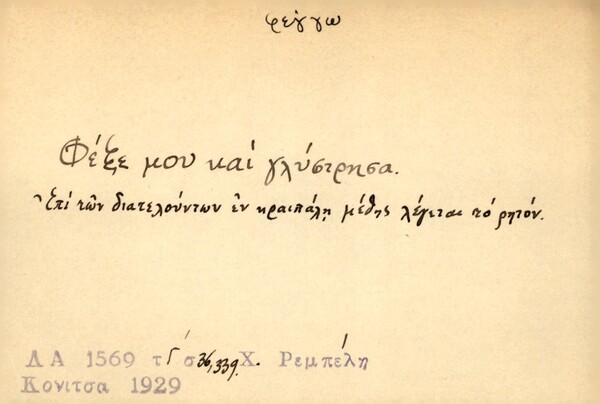 φέγγω
Φέξε μου καί γλύστρησα.
Ἐπί τῶν διατελούντων ἐν κραιπάλῃ μέθης λέγεται τό ρητόν.
ΛΑ 1569 τ Γ σ 36,339. Χ. Ρεμπέλη
Κονιτσα 1929